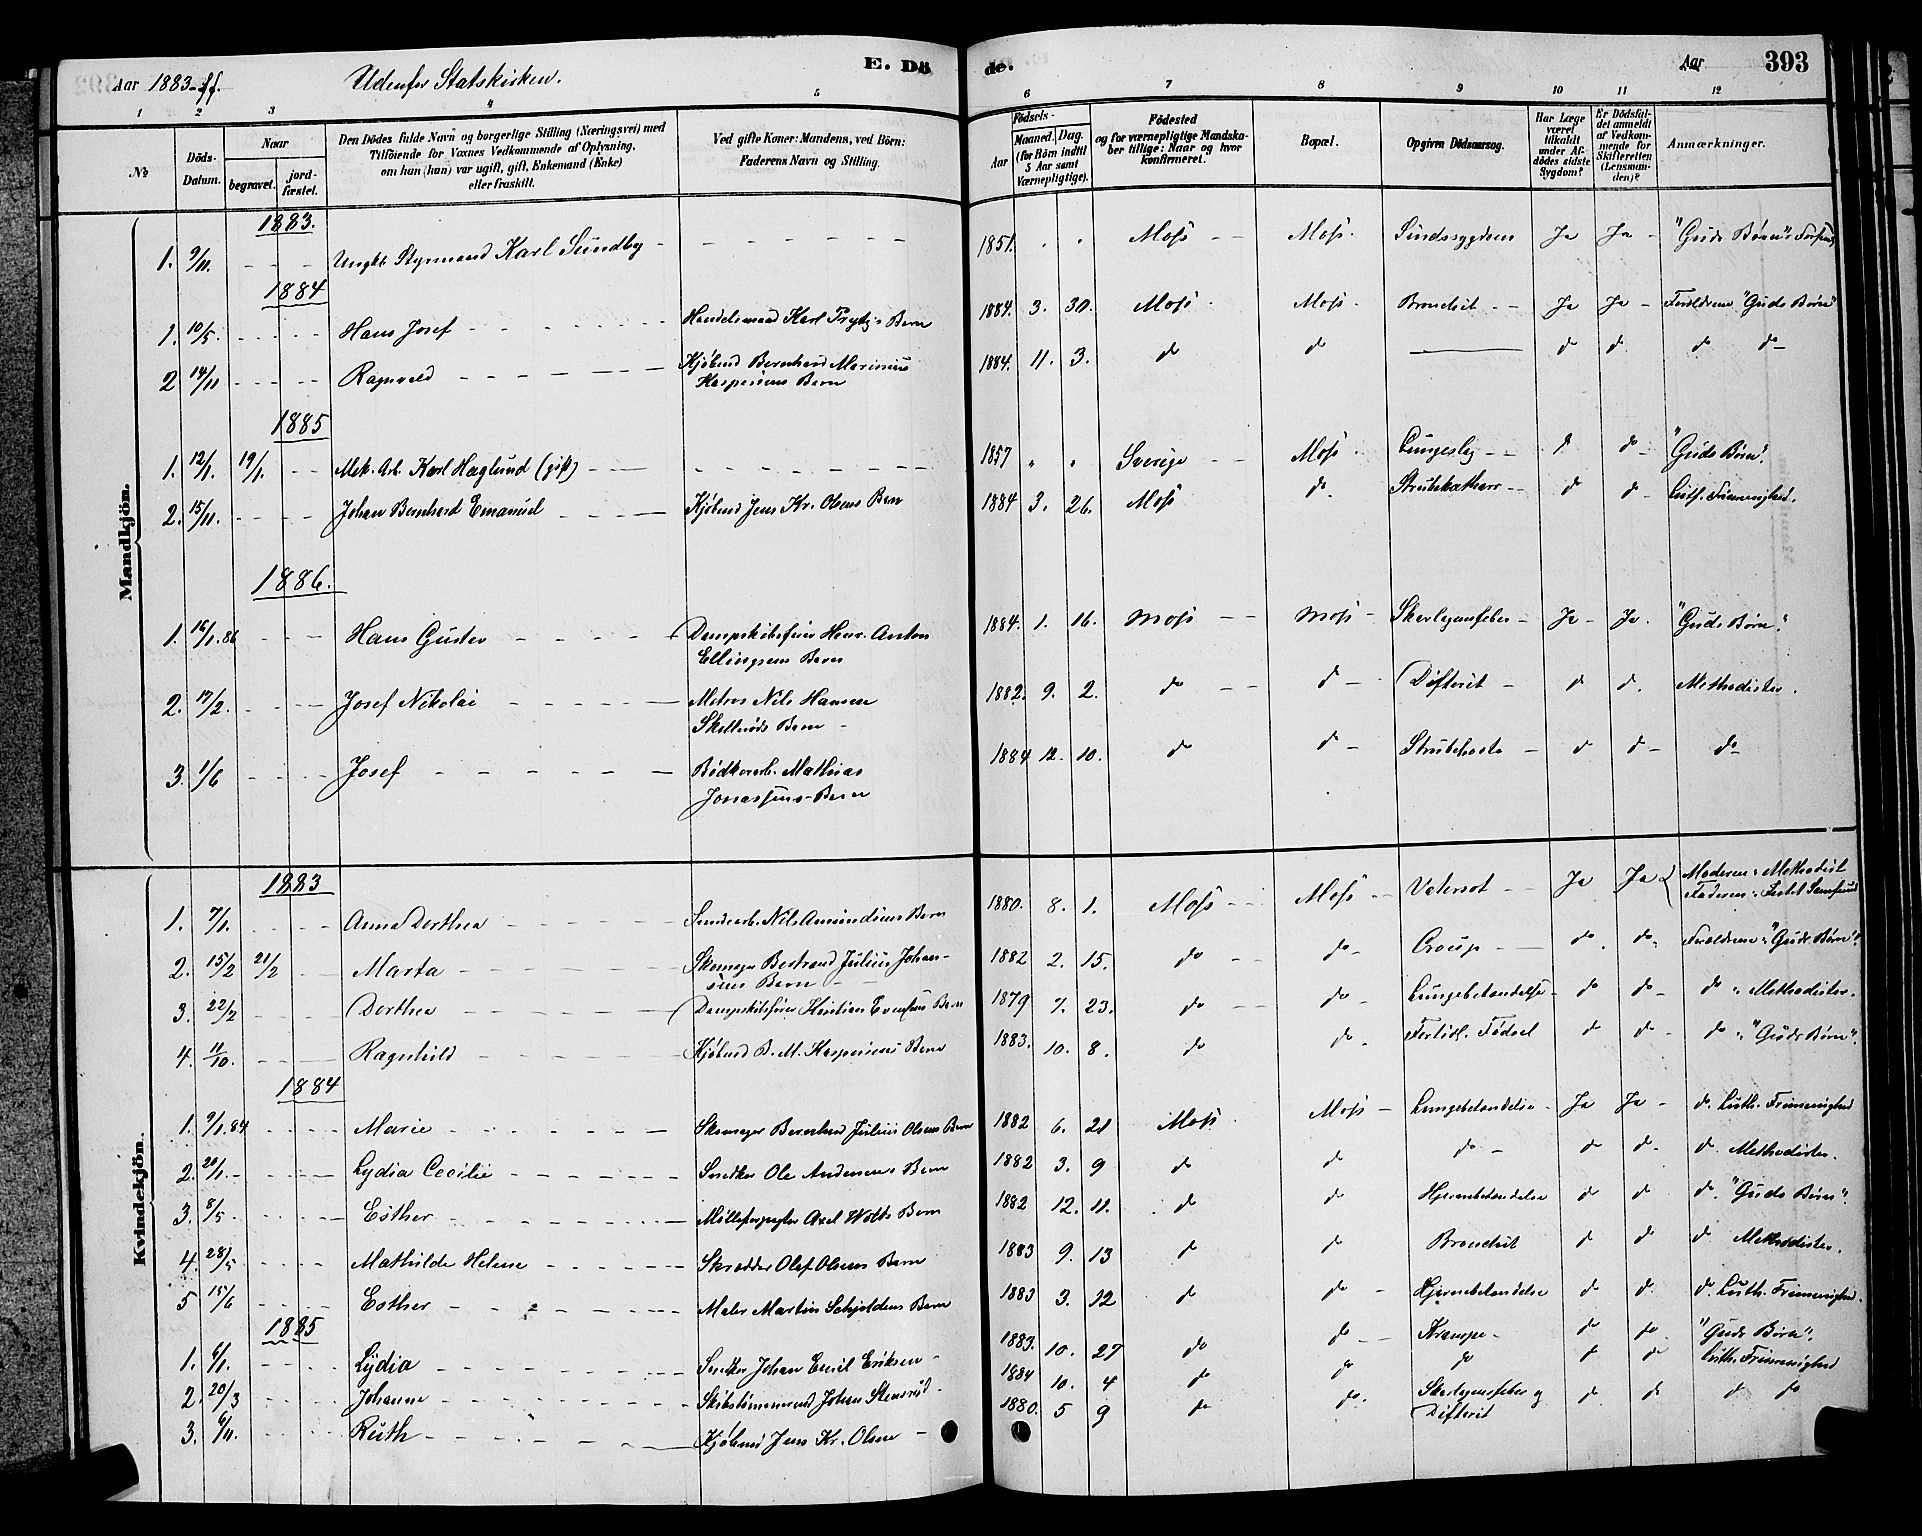 Aar 1883 ff. Udenfor Statskirken. E. Döde. Aar 393
1 2 3 4 5 6 7 8 9 10 11 12
No
Döds-Datum.
Naar
begravet.
jord-fæstet.
Den Dödes fulde Navn og borgerlige Stilling (Næringsvei) med
Tilföiende for Voxnes Vedkommende af Oplysning,
om han (hun) var ugift, gift, Enkemand (Enke)
eller fraskilt.
Ved gifte Koner: Mandens, ved Börn:
Faderens Navn og Stilling.
Födsels-
Aar
Maaned. Dag.
(for Börn indtil
5 Aar samt
Værnepligtige).
Födested
og for værnepligtige Mandska-
ber tillige: Naar og hvor
konfirmeret.
Bopæl.
Opgiven Dödsaarsag.
Har Læge
været
tilkaldt
under Af-
dödes sidste
Sygdom?
Er Dödsfal-
det anmeldt
af Vedkom-
mende for
Skifteretten
(Lensman-
den)?
Anmærkninger.
Mandkjön.
1883.
1. 9/11. Ungk. Styrmand Karl Sundby 1851. Moss Moss. Sindssygdom Ja Ja "Guds Børns"
1884
1. 10/5 Hans Josef Handelsmand Karl Trydgs Barn 1884. 3. 30. Moss Moss Bronchit Ja Ja Forældrene "Guds Børn"
2 14/11 Ragnvald Kjøbmd Bernhard Marinius
Kaspersens Barn 1884. 11. 3. do do do do do do
1885
1. 12/1. 19/1. Mek. Arb. Karl Haglund (gift) 1857 " " Sverige Moss Lungeslag do do "Guds Børn".
2. 15/11. Johan Bernhard Emanuel Kjøbmd Jens Kr. Olsens Barn 1884 3. 26. Moss do Strubekatharr do do Luth. Frimenighed.
1886.
1. 16/1.86 Hans Gustav Dampskibsfører Henr. Anton
Ellingsens Barn 1884. 1. 16. Moss Moss Skarlagensfeber Ja Ja. "Guds Børn".
2. 17/2. Josef Nikolai Matros Nils Hansen
Skallerøds Barn 1882. 9. 2. do do Difterit do do. Methodister.
3. 1/6 Josef Bødkerarb. Mathias
Jonassens Barn 1884 12. 10. do do Strubehoste do do do
Kvindekjön.
1883
1. 7/1. Anna Dorthea Nils Amundsens Barn 1880. 8. 1. Moss Moss Vatersot Ja Ja Moderen: Methodist
Faderen:
2. 15/2 21/2 Marta Skomager Bertrand Julius Johan-
sens Barn 1882 2. 15. do do Croup do. do. Forældrene "Guds Børn".
3. 22/2 Dorthea Dampskibsfører Kristian Evensens Barn 1879 7. 23. do do Lungebetændelse do do do Methodister.
4. 11/10. Ragnhild Kjøbmd B. M. Kaspersens Barn 1883. 10. 8. do do Fortidl. Fødsel do do do "Guds Børn".
1884
1. 9/1.84 Marie Skomager Bernhard Julius Olsens Barn 1882 6. 21 Moss Moss Lungebetændelse Ja Ja do. Luth. Frimenighed
2. 20/1. Lydia Cecilie Snedker Ole Andersens Barn 1882 3. 9 do do do do do do Methodister.
3. 8/5 Esther Axel Barn 1882 12. 11. do do Hjernebetændelse do do do. "Guds Børn".
4. 28/5 Mathilde Helene Skrædder Olaf Olsens Barn 1883 9. 13 do do Bronchit do do do Methodister.
5 15/6 Esther Maler Martin Schjoldens Barn 1883 3. 12 do do Hjernebetændelse do do do. Luth. Frimenighed.
1885
1. 6/1. Lydia Snedker Johan Emil Eriksen 1883. 10. 27 do do Krampe do do "Guds Børn".
2. 20/3 Johanne Skibstømmermand Johan Stensrud 1884 10. 4 do do do do do Luth. Frimenighed
3. 6/11. Ruth Kjøbmd Jens Kr. Olsen 1880. 5 9 do do. Skarlagensfeber og
Difterit do do do do